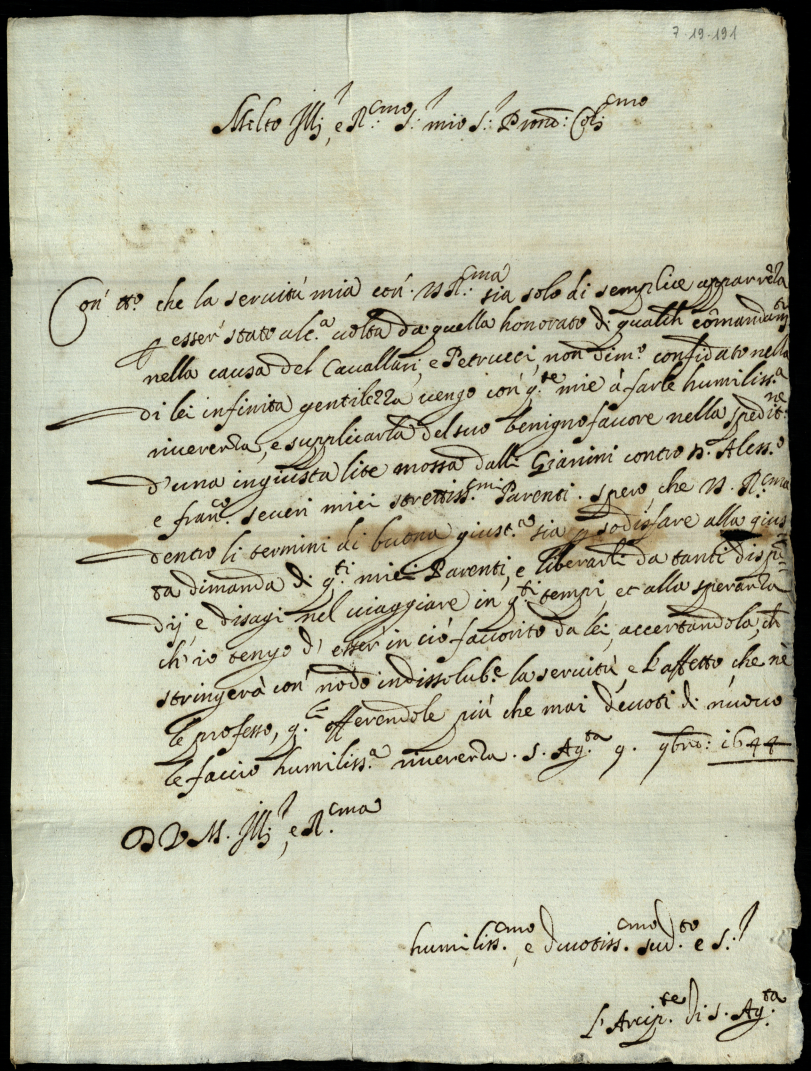 7-19-191
Molto Ill.r e R.mo S.r mio S.r Prone: Col.mo
Con' tto. che la seruitù mia con' V.R.ma sia solo di semplice apparreza
esser' stato alc.a uolta da quella honorato di qualch comandam.to
nella causa del Cauallari, e Petrucci, non dim.o confidato nella
di lei infinita gentilezza uengo con' q.te mie à farle humiliss.a
riuerenza, e supplicarla del suo benigno fauore nella spedit.ne
d'una ingiusta lite mossa dalli Gianini contro D. Aless.o
e fran.co seueri miei strettiss.mi Parenti. spero, che V. R.ma
dentro li termini di buona giust.a sia p sodisfare alla gius
ta dimanda di q.ti miei Parenti, e liberarli da tanti dispe=
dij e disagi nel uiaggiare in q.ti tempi et alla speranza
ch'io tengo d' esser' in ciò fauorito da lei, accertandola, ch
stringerà con' nodo indissolub.e la seruitù, e l'affetto che n'è
le professo, q.li offerendole più che mai deuoti di nuouo
le faccio humiliss.a riuerenza. S. Ag.ta 9. 9bre: 1644
D V M. Ill.r e R.ma
humiliss.mo, e deuotiss.mo seru.to e S.r
L'Arcip.te di S. Ag.ta